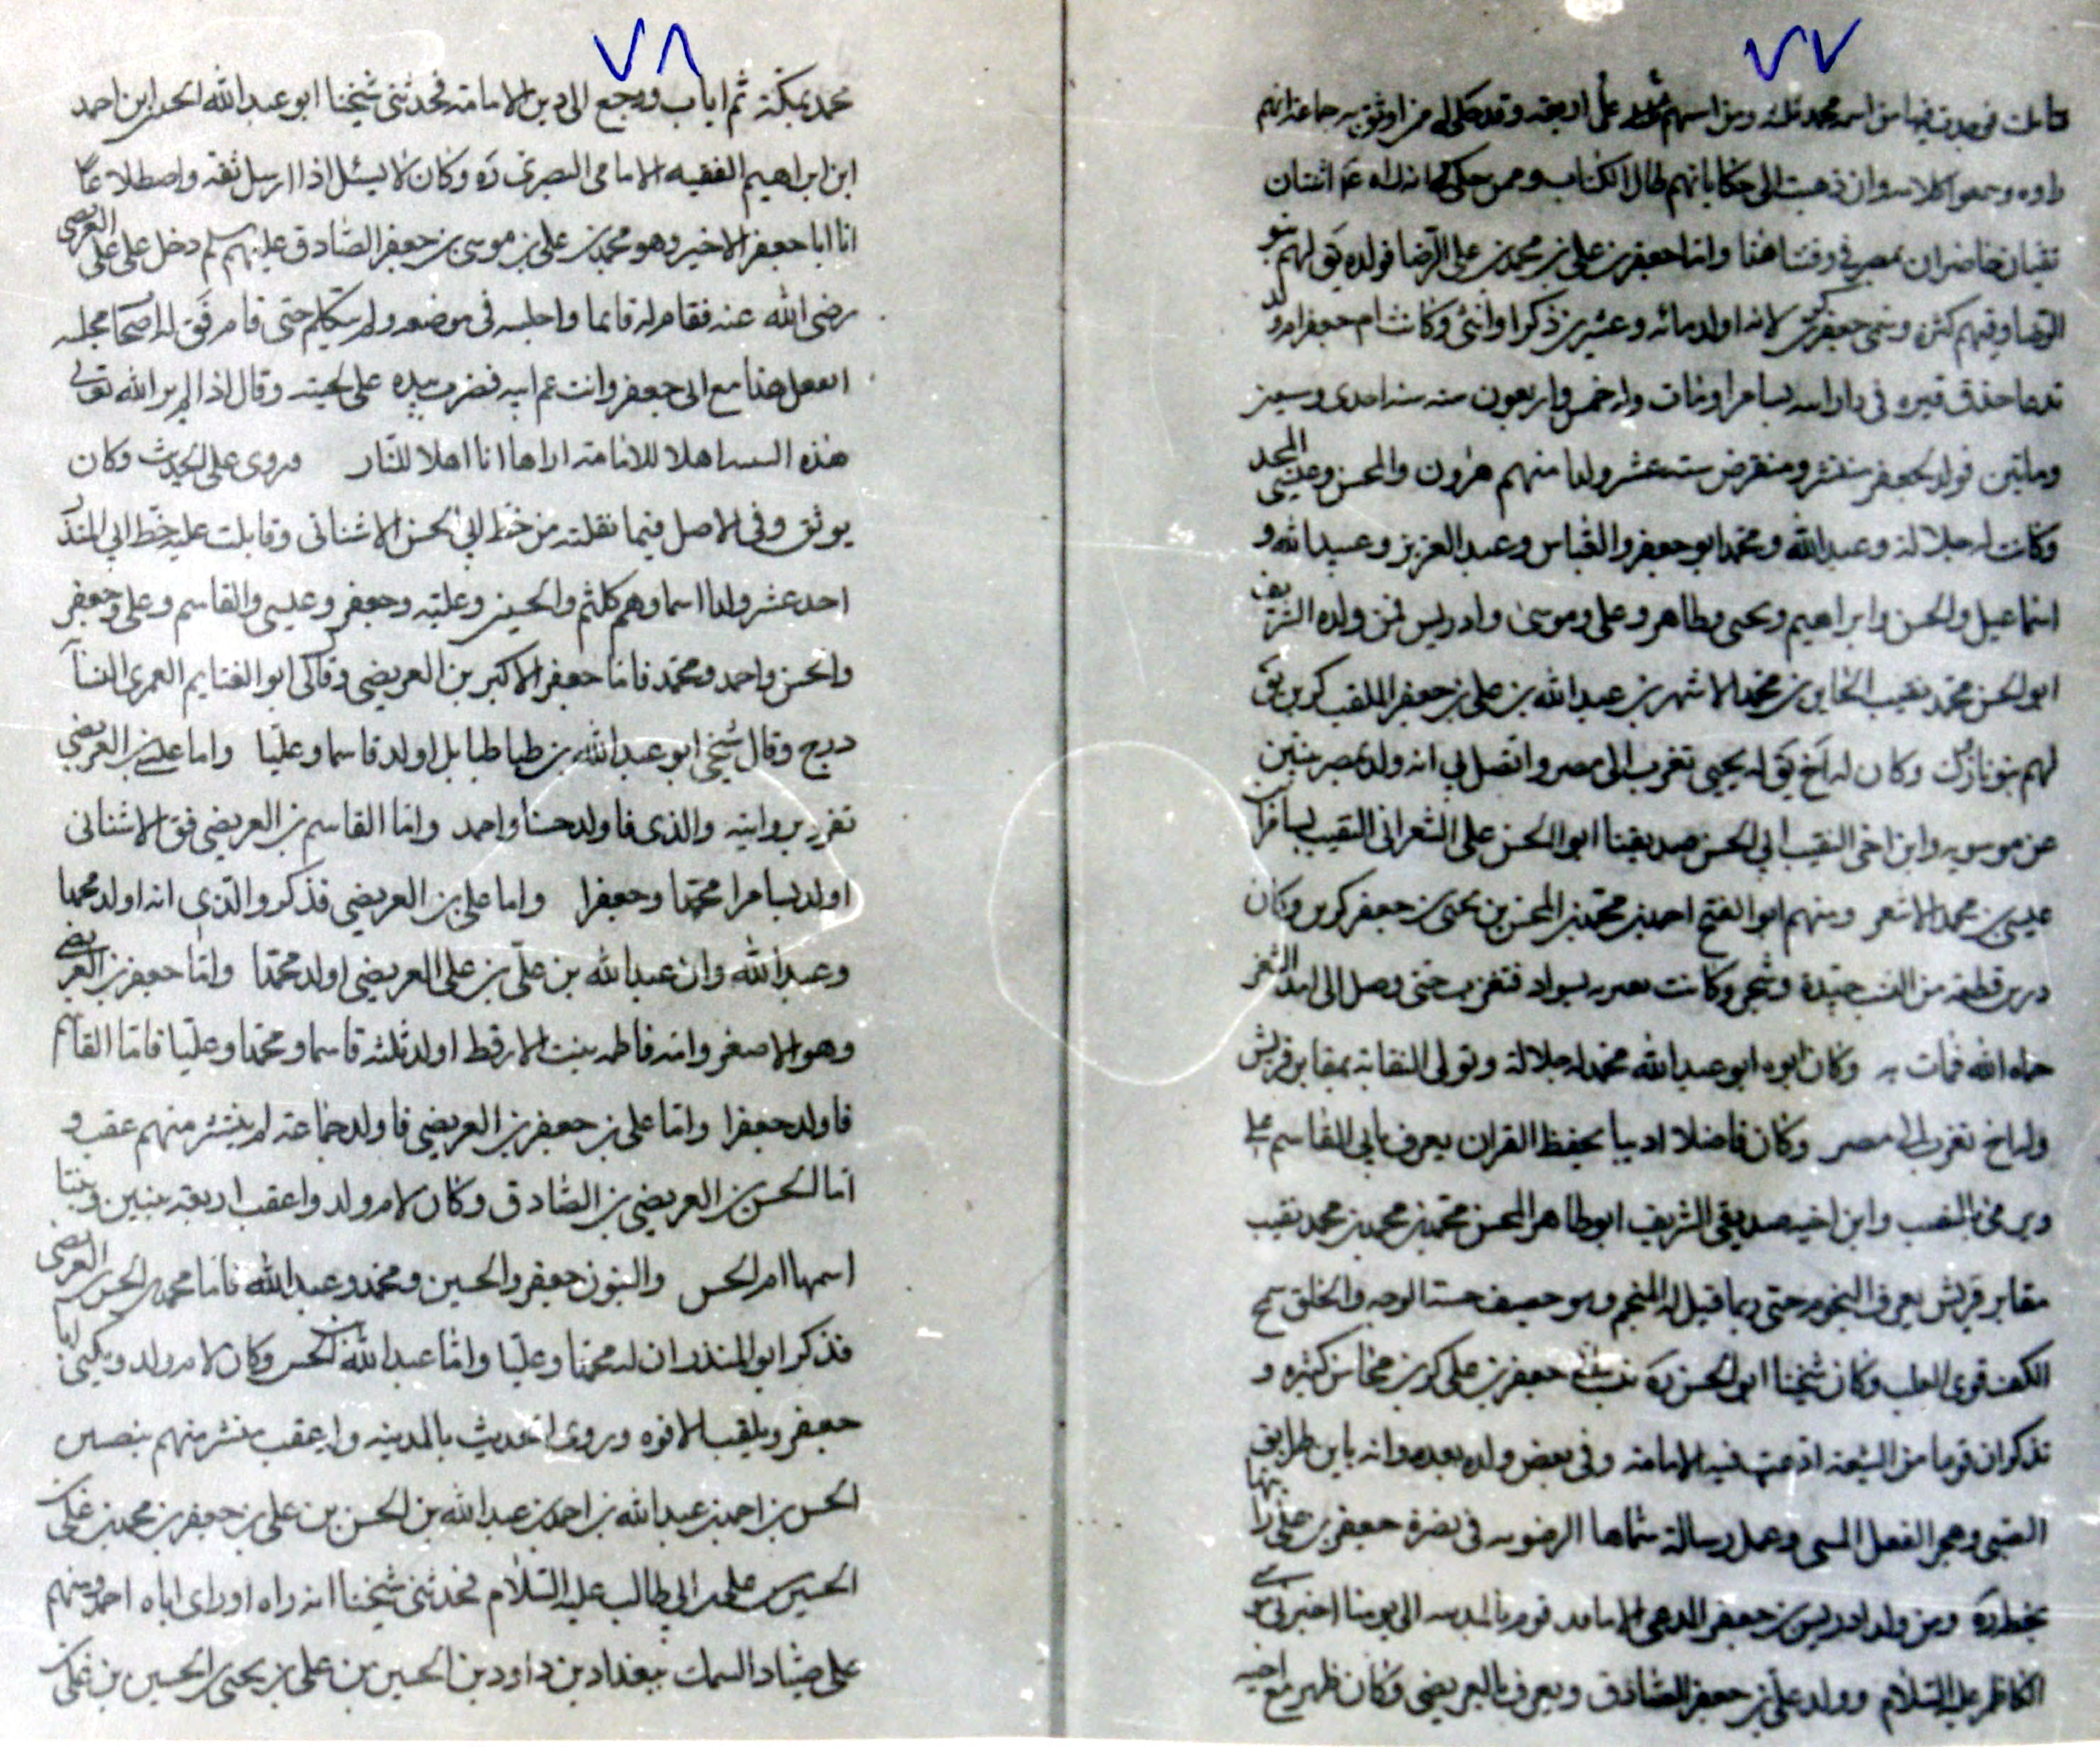 ٧٧
وامه وجمعوا كلامه وان ذهبت الى حكاياتهم طال الكتاب وممن حكى
نقيان حاضران بمصر في وقتنا هذا واما جعفر بن علي بن محمد بن علي الرضا فولده يق لهم بنو
الرضا وفيهم كثره وسمى جعفر كرين لانه اولد مائه وعشرين ذكرا وانثى وكانت ام جعفر ام ولد
قبره في دار ابيه بسامرا ومات وله خمس واربعون سنه سنه احدى وسبعين
وماتين فولد لجعفر منتشر ومنقرض سته عشر ولدا منهم هرون والمحسن وعيسى المجد
وكانت له جلالة وعبد الله ومحمد ابو جعفر والعباس وعبد العزيز وعبيد الله و
اسماعيل والحسن وابراهيم ويحيى وطاهر وعلي وموسى وادريس فمن ولده الشريف
ابو الحسن محمد نقيب بن محمد الاشهر بن عبد الله بن علي بن جعفر الملقب كرين يق
لهم بنو نازك وكان له اخ يق له يحيى تغرب الى مصر واتصل بي انه ولد بمصر بنتين
عن موسويه وابن اخي النقيب ابي الحسن صديقنا ابو الحسن علي الشعراني النقيب بسامرا
عيسى بن محمد الاشعر ومنهم ابو الفتح احمد بن محمد بن المحسن بن يحيى بن جعفر كرين وكان
درس قطعة من النسب جيدة وشجر وكانت بسواد فتغرب حتى وصل الى امد الثغر
حماه الله فمات به وكان ابوه ابو عبد الله محمد له جلالة وتولى النقابة بمقابر قريش
وله اخ تغرب الى مصر وكان فاضلا اديبا يحفظ القران يعرف بابي القاسم علي
ويرمى بالنصب وابن اخيه صديقي الشريف ابو طاهر المحسن محمد بن محمد بن محمد نقيب
مقابر قريش يعرف النجوم حتى ربما قيل له المنجم وهو حصيف حسن الوجه والخلق سمح
الكف قوي القلب وكان شيخنا ابو الحسن ره جعفر بن علي كرين محاسن كثيره و
تذكر ان قوما من الشيعة ادعت فيه الامامة وفي بعض ولده بعده وانه باين طرايق
الصبى وهجر الفعل السيى وعمل رسالة سماها الرضويه في نصرة جعفر بن علي رايتها
بخطه ره ومن ولد ادريس بن جعفر المدعى الامامه قوم بالمدينه الى يومنا
الكاظم عليه السلام وولد علي بن جعفر الصادق ويعرف بالعريضي وكان ظهر مع اخيه
٧٨
محمد بمكة ثم اناب ورجع الى دين الامامة فحدثني شيخنا ابو عبد الله الحسين ابن احمد
ابن ابراهيم الفقيه الامامي البصري ره وكان لا يسئل اذا ارسل ثقة واصطلاعا
ان ابا جعفر الاخير وهو محمد بن علي بن موسى بن جعفر الصادق عليهم سلم دخل على علي العريضي
رضي الله عنه فقام له قايما واجلسه في موضعه ولم يتكلم حتى قام فق له اصحاب مجلسه
اتفعل هذا مع ابي جعفر وانت عم ابيه فضرب بيده على لحيته وقال اذا لم ير الله تعالى
هذه اهلا للامامة اراها انا اهلا للنار وروى علي الحديث وكان
يوثق وفي الاصل فيما نقلته من خط ابي الحسن الاشناني وقابلت عليه خط ابي المنذر
احد عشر ولدا اسماوهم كلثم والحسين وعلية وجعفر وعيسى والقاسم وعلي وجعفر
والحسن واحمد ومحمد فاما جعفر الاكبر بن العريضي وقال لي ابو الغنايم العمري النساب
درج وقال شيخي ابو عبد الله بن طباطبا بل اولد قاسما وعليا واما عيسى بن العريضي
تفرد بروايته والذي فاولد حسنا واحمد واما القاسم بن العريضي فق الاشناني
اولد بسامرا محمدا وجعفرا واما علي بن العريضي فذكر والذي انه اولد محمدا
وعبد الله وان عبد الله بن علي بن علي العريضي اولد محمدا واما جعفر بن العريضي
وهو الاصغر وامه فاطمه بنت الارقط اولد ثلثه قاسما ومحمدا وعليا فاما القاسم
فاولد جعفرا واما علي بن جعفر بن العريضي فاولد جماعة لم ينتشر منهم عقب و
اما الحسن بن العريضي بن الصادق وكان لام ولد واعقب اربعة بنين وبنتا
اسمها ام الحسن والبنون جعفر والحسين ومحمد وعبد الله فاما محمد بن الحسن بن العريضي
فذكر ابو المنذر ان له محمدا وعليا واما عبد الله بن الحسن وكان لام ولد ويكنى ابا
جعفر ويلقب الافوه وروى الحديث بالمدينه واعقب منتشر منهم بنصيبين
الحسن بن احمد بن عبد الله بن احمد بن عبد الله بن الحسن بن علي بن جعفر بن محمد بن علي بن
الحسين بن علي بن ابي طالب عليه السلام فحدثني شيخنا انه راه او راى اباه احمد ومنهم
علي صياد السمك ببغداد بن داود بن الحسين بن علي بن يحيى بن الحسين بن علي بن